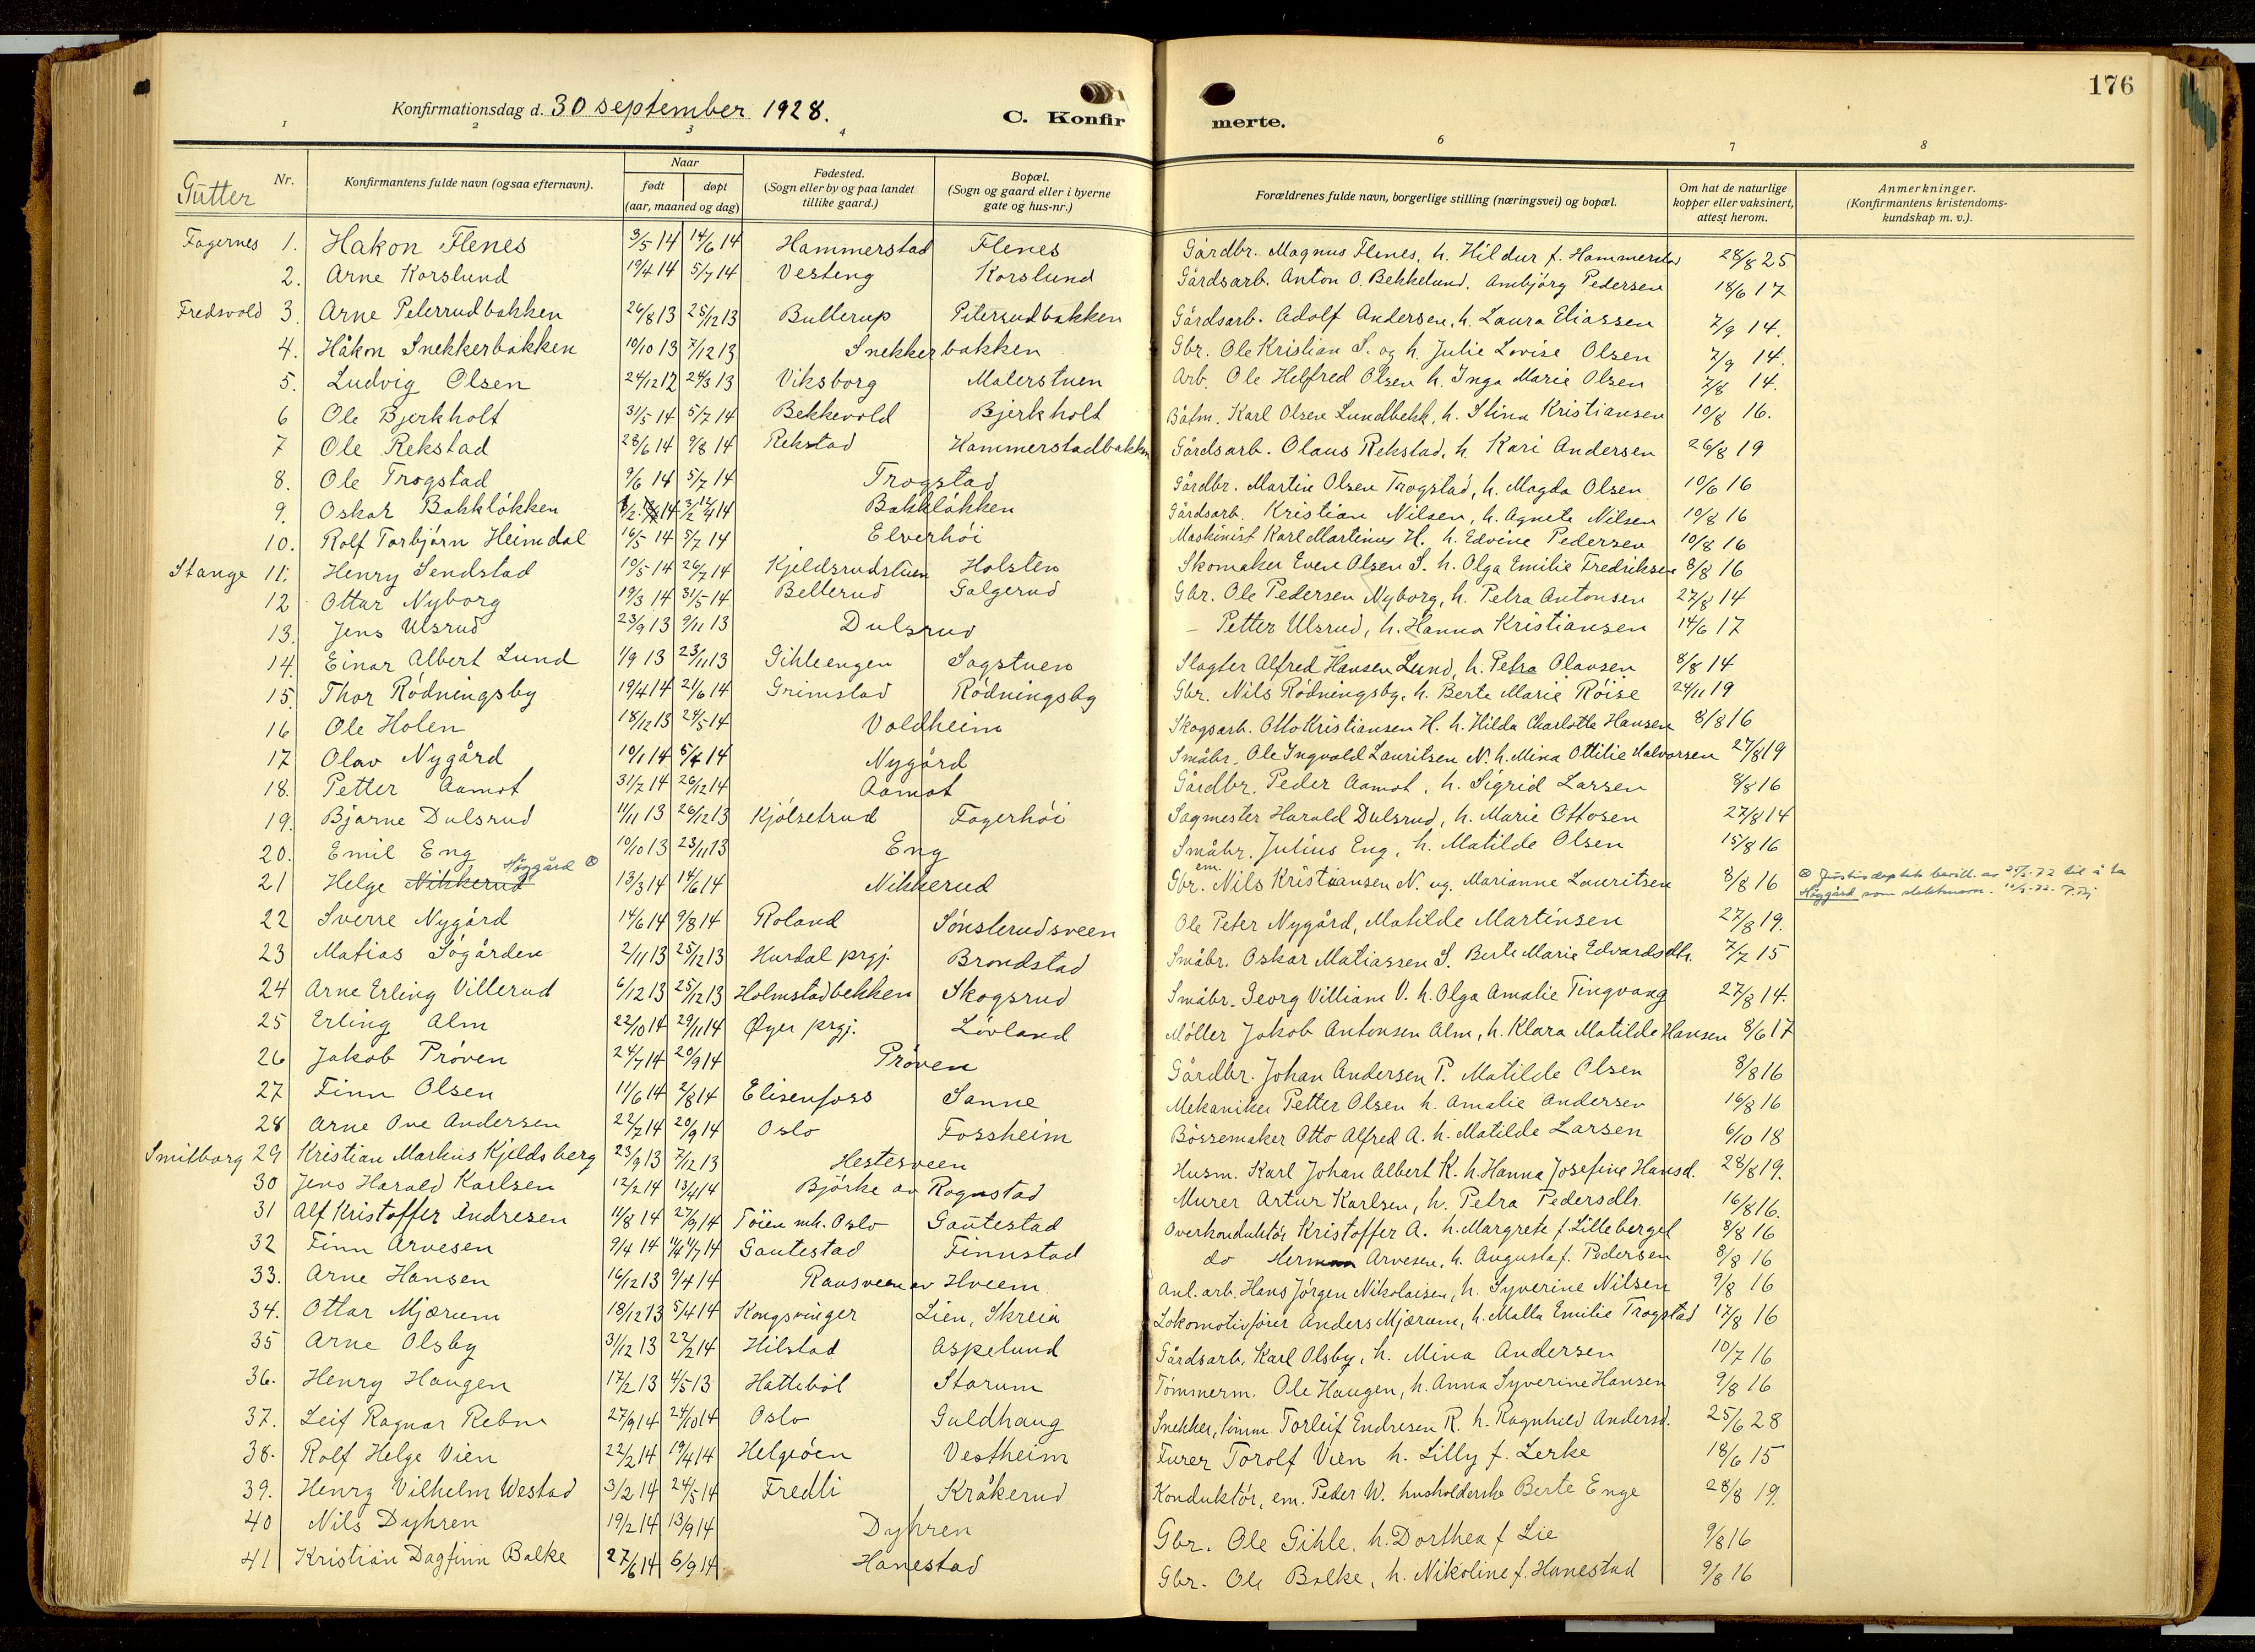 176
Konfirmationsdag d. 30 september 1928. C. Konfir merte.
1 2 3 4 6 7 8
Gutter
Nr. Konfirmantens fulde navn (ogsaa efternavn). Naar født døpt (aar, maaned og dag) Fødested. (Sogn eller by og paa landet tillike gaard.) Bopæl. (Sogn og gaard eller i byerne gate og hus-nr.) Forældrenes fulde navn, borgerlige stilling (næringsvei) og bopæl. Om hat de naturlige kopper eller vaksinert, attest herom. Anmerkninger. (Konfirmantens kristendoms-kundskap m. v.).
Fagernes 1. Hakon Flenes 3/5 14 14/6 14 Hammerstad Flenes Gårdbr. Magnus Flenes, h. Hildur f. Hammerstad 28/8 25
2. Arne Korslund 19/4 14 5/7 14 Vesteng Korslund Gårdsarb. Anton O. Bekkelund. Ambjørg Pedersen 18/6 17
Fredsvold 3. Arne Pelerrudbakken 26/8 13 25/12 13 Bullerup Pilerrudbakken Gårdsarb. Adolf Andersen, h. Laura Eliassen 7/9 14.
4. Håkon Snekkerbakken 10/10 13 7/12 13 Snekkerbakken Gbr. Ole Kristian S. og h. Julie Lovise Olsen 7/9 14.
5. Ludvig Olsen 24/12 12 24/3 13 Viksborg Malerstuen Arb. Ole Helfred Olsen h. Inga Marie Olsen 7/8 14.
6 Ole Bjerkholt 31/5 14 5/7 14 Bekkevold Bjerkholt Båtm. Karl Olsen Lundbekk, h. Stina Kristiansen 10/8 16.
7 Ole Rekstad 28/6 14 9/8 14 Rekstad Hammerstadbakken Gårdsarb. Olaus Rekstad, h. Kari Andersen 26/8 19
8. Ole Trogstad 9/6 14 5/7 14 Trogstad Gårdbr. Martin Olsen Trogstad, h. Magda Olsen 10/6 16
9. Oskar Bakkløkken 14 14 Bakkløkken Gårdsarb. Kristian Nilsen, h. Agnete Nilsen 10/8 16
10. Rolf Torbjørn Heimdal 16/5 14 5/7 14 Elverhøi Maskinist Karl Martinus H. h. Edvine Pedersen 10/8 16
Stange 11. Henry Sendstad 10/5 14 26/7 14 Kjeldsrudstuen Holsten Skomaker Even Olsen S. h. Olga Emilie Fredriksen 8/8 16
12 Ottar Nyborg 19/3 14 31/5 14 Bellerud Galgerud Gbr. Ole Pedersen Nyborg, h. Petra Antonsen 27/8 14
13. Jens Ulsrud 23/9 13 9/11 13 Dulsrud – Petter Ulsrud, h. Hanna Kristiansen 14/6 17
14. Einar Albert Lund 1/9 13 23/11 13 Gihleengen Sagstuen Slagter Alfred Hansen Lund, h. Petra Olausen 8/8 14
15. Thor Rødningsby 19/4 14 21/6 14 Grimstad Rødningsby Gbr. Nils Rødningsby, h. Berte Marie Røise 24/11 19
16 Ole Holen 18/12 13 24/5 14 Voldheim Skogsarb. Otto Kristiansen H. h. Hilda Charlotte Hansen 8/8 16
17 Olav Nygård 10/1 14 5/4 14 Nygård Småbr. Ole Ingvald Lauritsen N. h. Mina Ottilie Halvorsen 27/8 19
18. Petter Aamot 31/7 14 26/12 14 Aamot Gårdbr. Peder Aamot, h. Sigrid Larsen 8/8 16
19. Bjarne Dulsrud 11/11 13 26/12 13 Kjølsetrud Fagerhøi Sagmester Harald Dulsrud, h. Marie Ottosen 27/8 14
20. Emil Eng 10/10 13 23/11 13 Eng Småbr. Julius Eng, h. Matilde Olsen 15/8 16
21 Helge Nikkerud Høgård ⊗ 13/3 14 14/6 14 Nikkerud Gbr. em. Nils Kristiansen N. ug. Marianne Lauritsen 8/8 16
22 Sverre Nygård 14/6 14 9/8 14 Roland Sønsterudsveen Ole Peter Nygård, Matilde Martinsen 27/8 19.
23 Matias Søgården 2/11 13 25/12 13 Hurdal prgj. Brondstad Småbr. Oskar Matiassen S. Berte Marie Edvardsdtr. 7/7 15
24 Arne Erling Villerud 6/12 13 25/12 13 Holmstadbekken Skogsrud Småbr. Georg Villiam V. h. Olga Amalie Tingvang 27/8 14.
25 Erling Alm 22/10 14 29/11 14 Øyer prgj. Løvland Møller Jakob Antonsen Alm, h. Klara Matilde Hansen 8/6 17
26 Jakob Prøven 24/7 14 20/9 14 Prøven Gårdbr. Johan Andersen P. Matilde Olsen 8/8 16
27 Finn Olsen 11/6 14 2/8 14 Elisenfoss Sanne Mekaniker Petter Olsen h. Amalie Andersen 16/8 16
28 Arne Ove Andersen 22/7 14 20/9 14 Oslo Fossheim Børsemaker Otto Alfred A. h. Matilde Larsen 6/10 18
Smilborg 29 Kristian Markus Kjeldsberg 23/9 13 7/12 13 Hestesveen Husm. Karl Johan Albert K. h. Hanna Josefine Hansd. 28/8 19.
30 Jens Harald Karlsen 12/2 14 13/4 14 Bjørke av Rognstad Murer Artur Karlsen, h. Petra Pedersdtr. 16/8 16.
31 Alf Kristoffer Andresen 11/8 14 27/9 14 Tøien mh. Oslo Gautestad Overkonduktør Kristoffer A. h. Margrete f. Lilleberget 8/8 16
32 Finn Arvesen 9/4 14 14 Gautestad Finnstad do Herman Arvesen, h. Augusta f. Pedersen 8/8 16
33. Arne Hansen 16/12 13 9/4 14 Rausveen av Hveem Anl. arb. Hans Jørgen Nikolaisen, h. Syverine Nilsen 9/8 16
34. Ottar Mjærum 18/12 13 5/4 14 Kongsvinger Lien, Skreia Lokomotivfører Anders Mjærum, h. Malla Emilie Trogstad 17/8 16
35 Arne Olsby 31/12 13 22/2 14 Hilstad Aspelund Gårdsarb. Karl Olsby, h. Mina Andersen 10/7 16
36. Henry Haugen 17/2 13 4/5 13 Hattebøl Starum Tømmerm. Ole Haugen, h. Anna Syverine Hansen 9/8 16
37. Leif Ragnar Rebne 27/9 14 24/10 14 Oslo Guldhaug Snekker, tømm Torleif Endresen R. h. Ragnhild Andersd. 25/6 28
38. Rolf Helge Vien 22/2 14 19/4 14 Helgeøen Vestheim Furer Torolf Vien h. Lilly f. Lerke 18/6 15
39. Henry Vilhelm Westad 3/2 14 24/5 14 Fredli Kråkerud Konduktør, em. Peder W. husholderske Berte Enge 28/8 19.
40 Nils Dyhren 19/2 14 13/9 14 Dyhren Gbr. Ole Gihle, h. Dorthea f Lie 9/8 16
41 Kristian Dagfinn Balke 27/6 14 6/9 14 Hanestad Gbr. Ole Balke, h. Nikoline f. Hanestad 9/8 16
⊗ Justisdeptets bevill. av 72 til å ta
Høgård som slektsnavn.